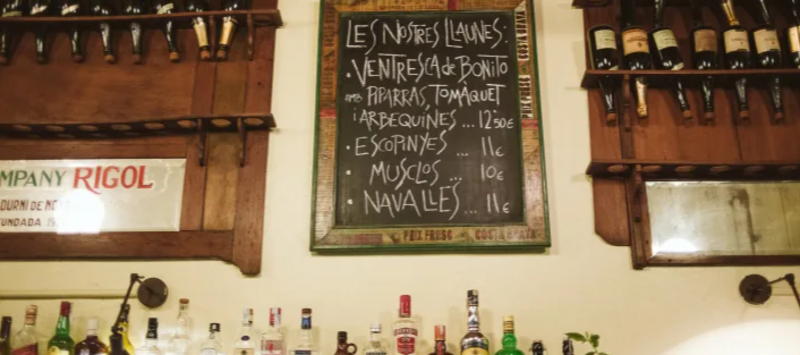 LES NOSTRES LLAUNES:
· VENTRESCA de BONITO
amb PIPARRAS, TOMÀQUET
i ARBEQUINES ... 12'50€
· ESCOPINYES ... 11€
· MUSCLOS ... 10€
· NAVALLES ... 11€
PEIX FRESC COSTA BRAVA
COSTA BRAVA
PEIX FRESC
MPANY RIGOL
DURNI DE NO
UNDADA 19